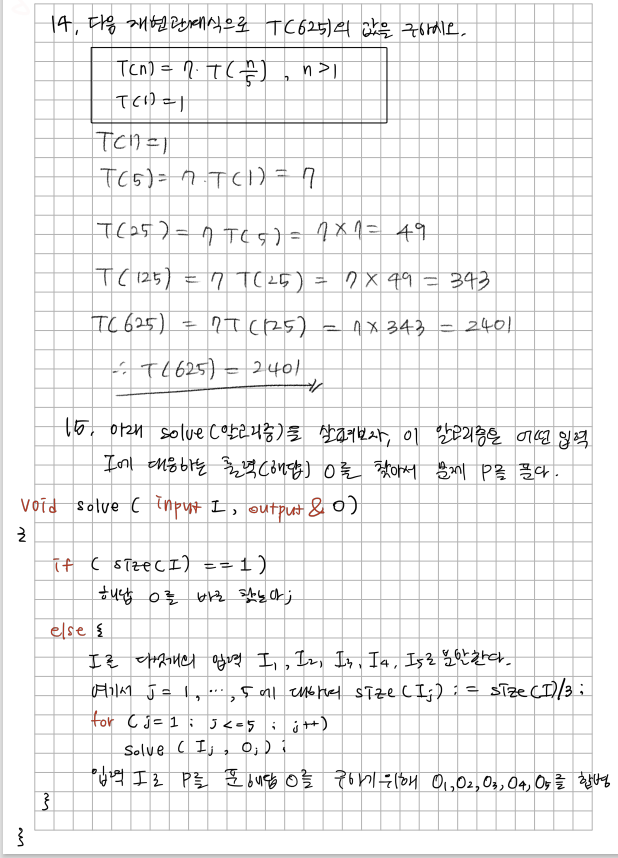 14. 다음 재현관계식으로 T(625)의 값을 구하시오.
T(n) = 7 · T(n/5) , n > 1
T(1) = 1
T(1) = 1
T(5) = 7 · T(1) = 7
T(25) = 7 T(5) = 7 × 7 = 49
T(125) = 7 T(25) = 7 × 49 = 343
T(625) = 7T(125) = 7 × 343 = 2401
∴ T(625) = 2401
15. 아래 solve(알고리즘)를 살펴보자, 이 알고리즘은 어떤 입력
I에 대응하는 출력(해답) O를 찾아서 문제 P를 푼다.
void solve ( input I, output & O)
{
if ( size(I) == 1)
해답 O를 바로 찾는다;
else {
I를 다섯개의 입력 I1, I2, I3, I4, I5로 분할한다.
여기서 j = 1, ⋯, 5에 대하여 size(Ij) := size(I)/3 ;
for (j=1 ; j<=5 ; j++)
solve ( Ij , Oj ) ;
입력 I로 P를 푼 해답 O를 구하기위해 O1, O2, O3, O4, O5를 합병
}
}